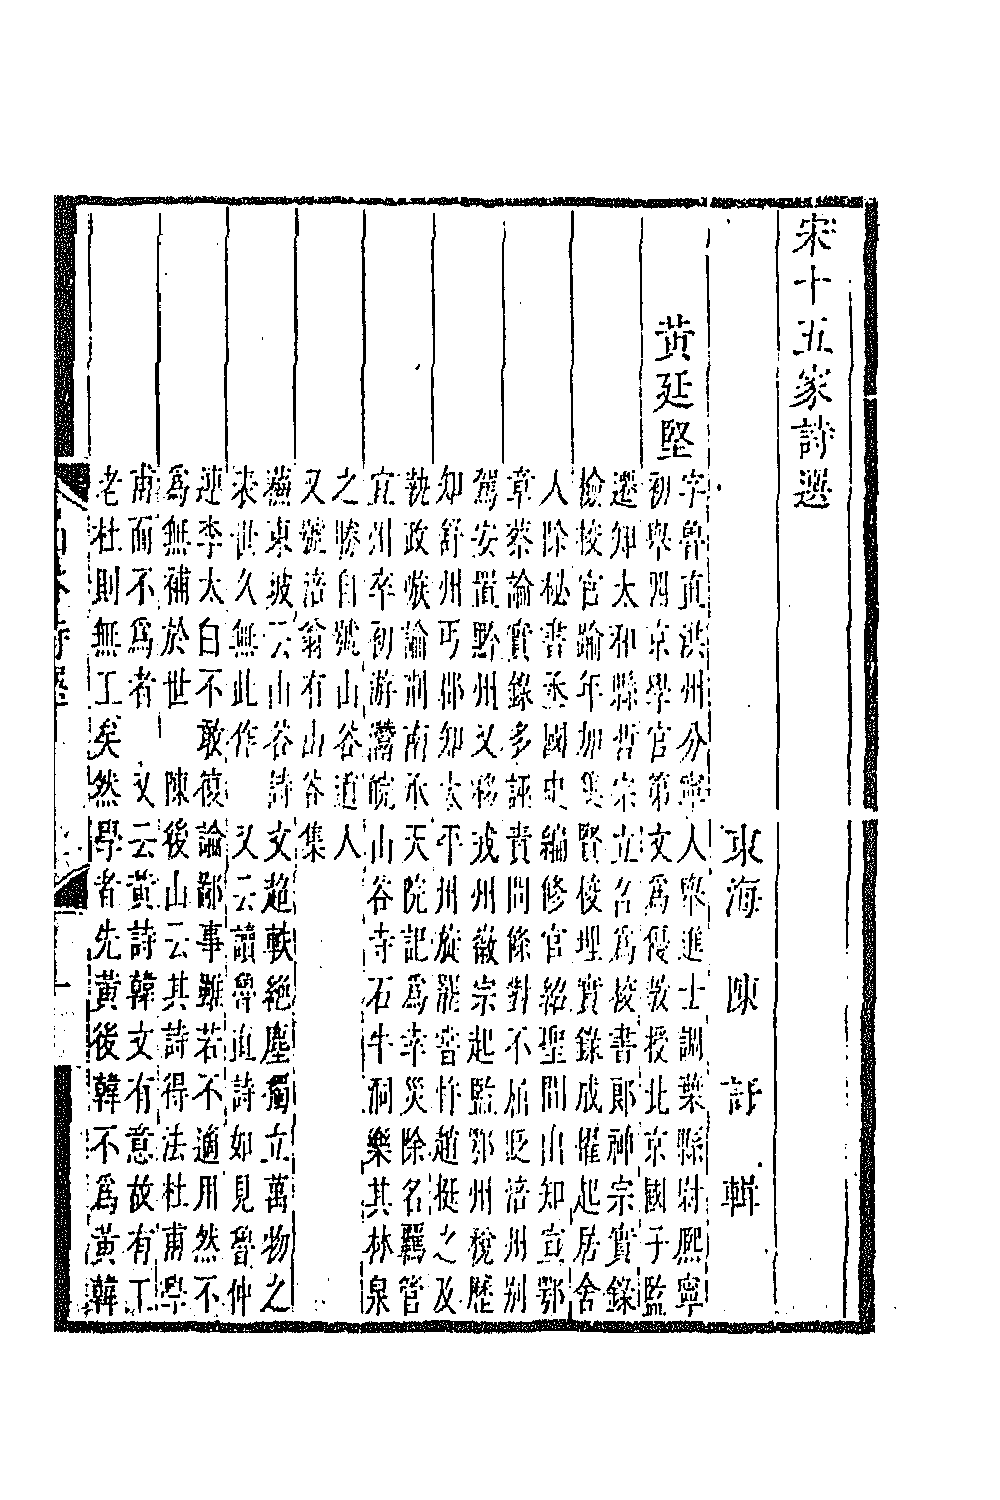 宋十五家詩選
東海 陳 訏 輯
黃廷堅
字魯直洪州分寧人舉進士調葉縣尉熙寧
初舉四京學官第文為優教授北京國子監
遷知太和縣哲宗立召為校書郎神宗實錄
檢校官踰年加集賢校理實錄成擢起居舍
人除秘書丞國史編修官紹聖間出知宣鄂
章蔡論實錄多誣責問條對不屈貶涪州別
駕安置黔州又移戎州徽宗起監鄂州稅歷
知舒州丐郡知太平州旋罷嘗忤趙挺之及
執政嗾論荊南承天院記為幸災除名羈管
宜州卒初游灊皖山谷寺石牛洞樂其林泉
之勝自號山谷道人
又號涪翁有山谷集
蘇東坡云山谷詩文超軼絕塵獨立萬物之
表世久無此作 又云讀魯直詩如見魯仲
連李太白不敢復論鄙事雖若不適用然不
為無補於世 陳後山云其詩得法杜甫學
甫而不為者 又云黃詩韓文有意故有工
老杜則無工矣然學者先黃後韓不為黃韓